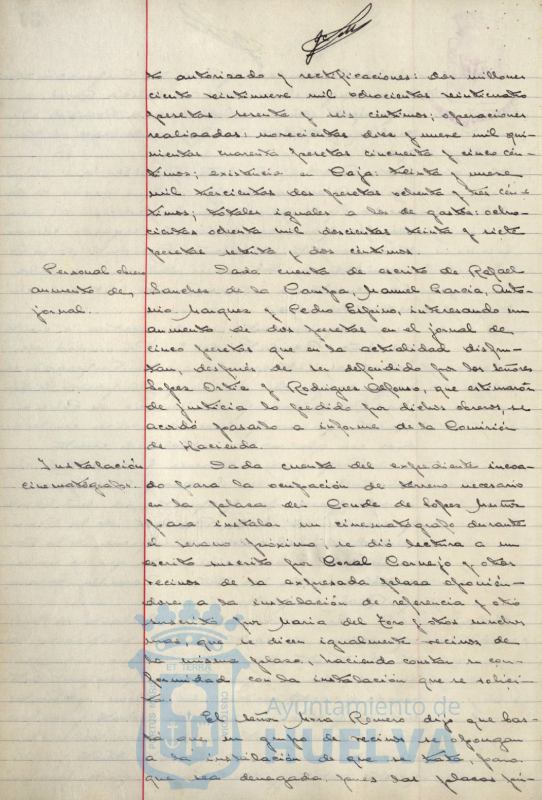 to autorizado y rectificaciones: dos millones
ciento veintinueve mil ochocientas veinticuatro
pesetas y seis céntimos; operaciones
realizadas: novecientas diez y nueve mil qui-
nientas cuarenta pesetas cincuenta y cinco cén-
timos; existencia en Caja: treinta y nueve
mil trescientas dos pesetas ochenta y tres cén-
timos; totales iguales a los de gastos: ocho-
cientas ochenta mil doscientas treinta y siete
pesetas setenta y dos céntimos.
Personal obrero
aumento de
jornal.
Dada cuenta de escrito de Rafael
Sanchez de la Campa, Manuel Garcia, Anto-
nio Marquez y Pedro Espino, interesando un
aumento de dos pesetas en el jornal de
cinco pesetas que en la actualidad disfru-
tan, después de ser defendido por los señores
Lopez Ortiz y Rodriguez Alfonso, que estimaron
de justicia lo pedido por dichos obreros, se
acordó pasarlo a informe de la Comisión
de Hacienda.
Instalación
cinematógrafo.
Dada cuenta del expediente incoa-
do para la ocupación de terreno necesario
en la plaza de Conde de Lopez Muñoz
para instalar un cinematógrafo durante
el verano próximo, se dió lectura a un
escrito suscrito por Coral Cornejo y otros
vecinos de la expresada plaza oponién-
dose a la instalación de referencia y otro
suscrito por Maria del Toro y otros muchos
mas, que se dicen igualmente vecinos de
la misma plaza, haciendo constar su con-
formidad con la instalación que se solici-
ta.
El señor Mora Romero dijo que bas-
ta que un grupo de vecinos se opongan
a la instalación de que se trata, para
que sea denegada, pues las plazas pú-
Ayuntamiento de
HUELVA